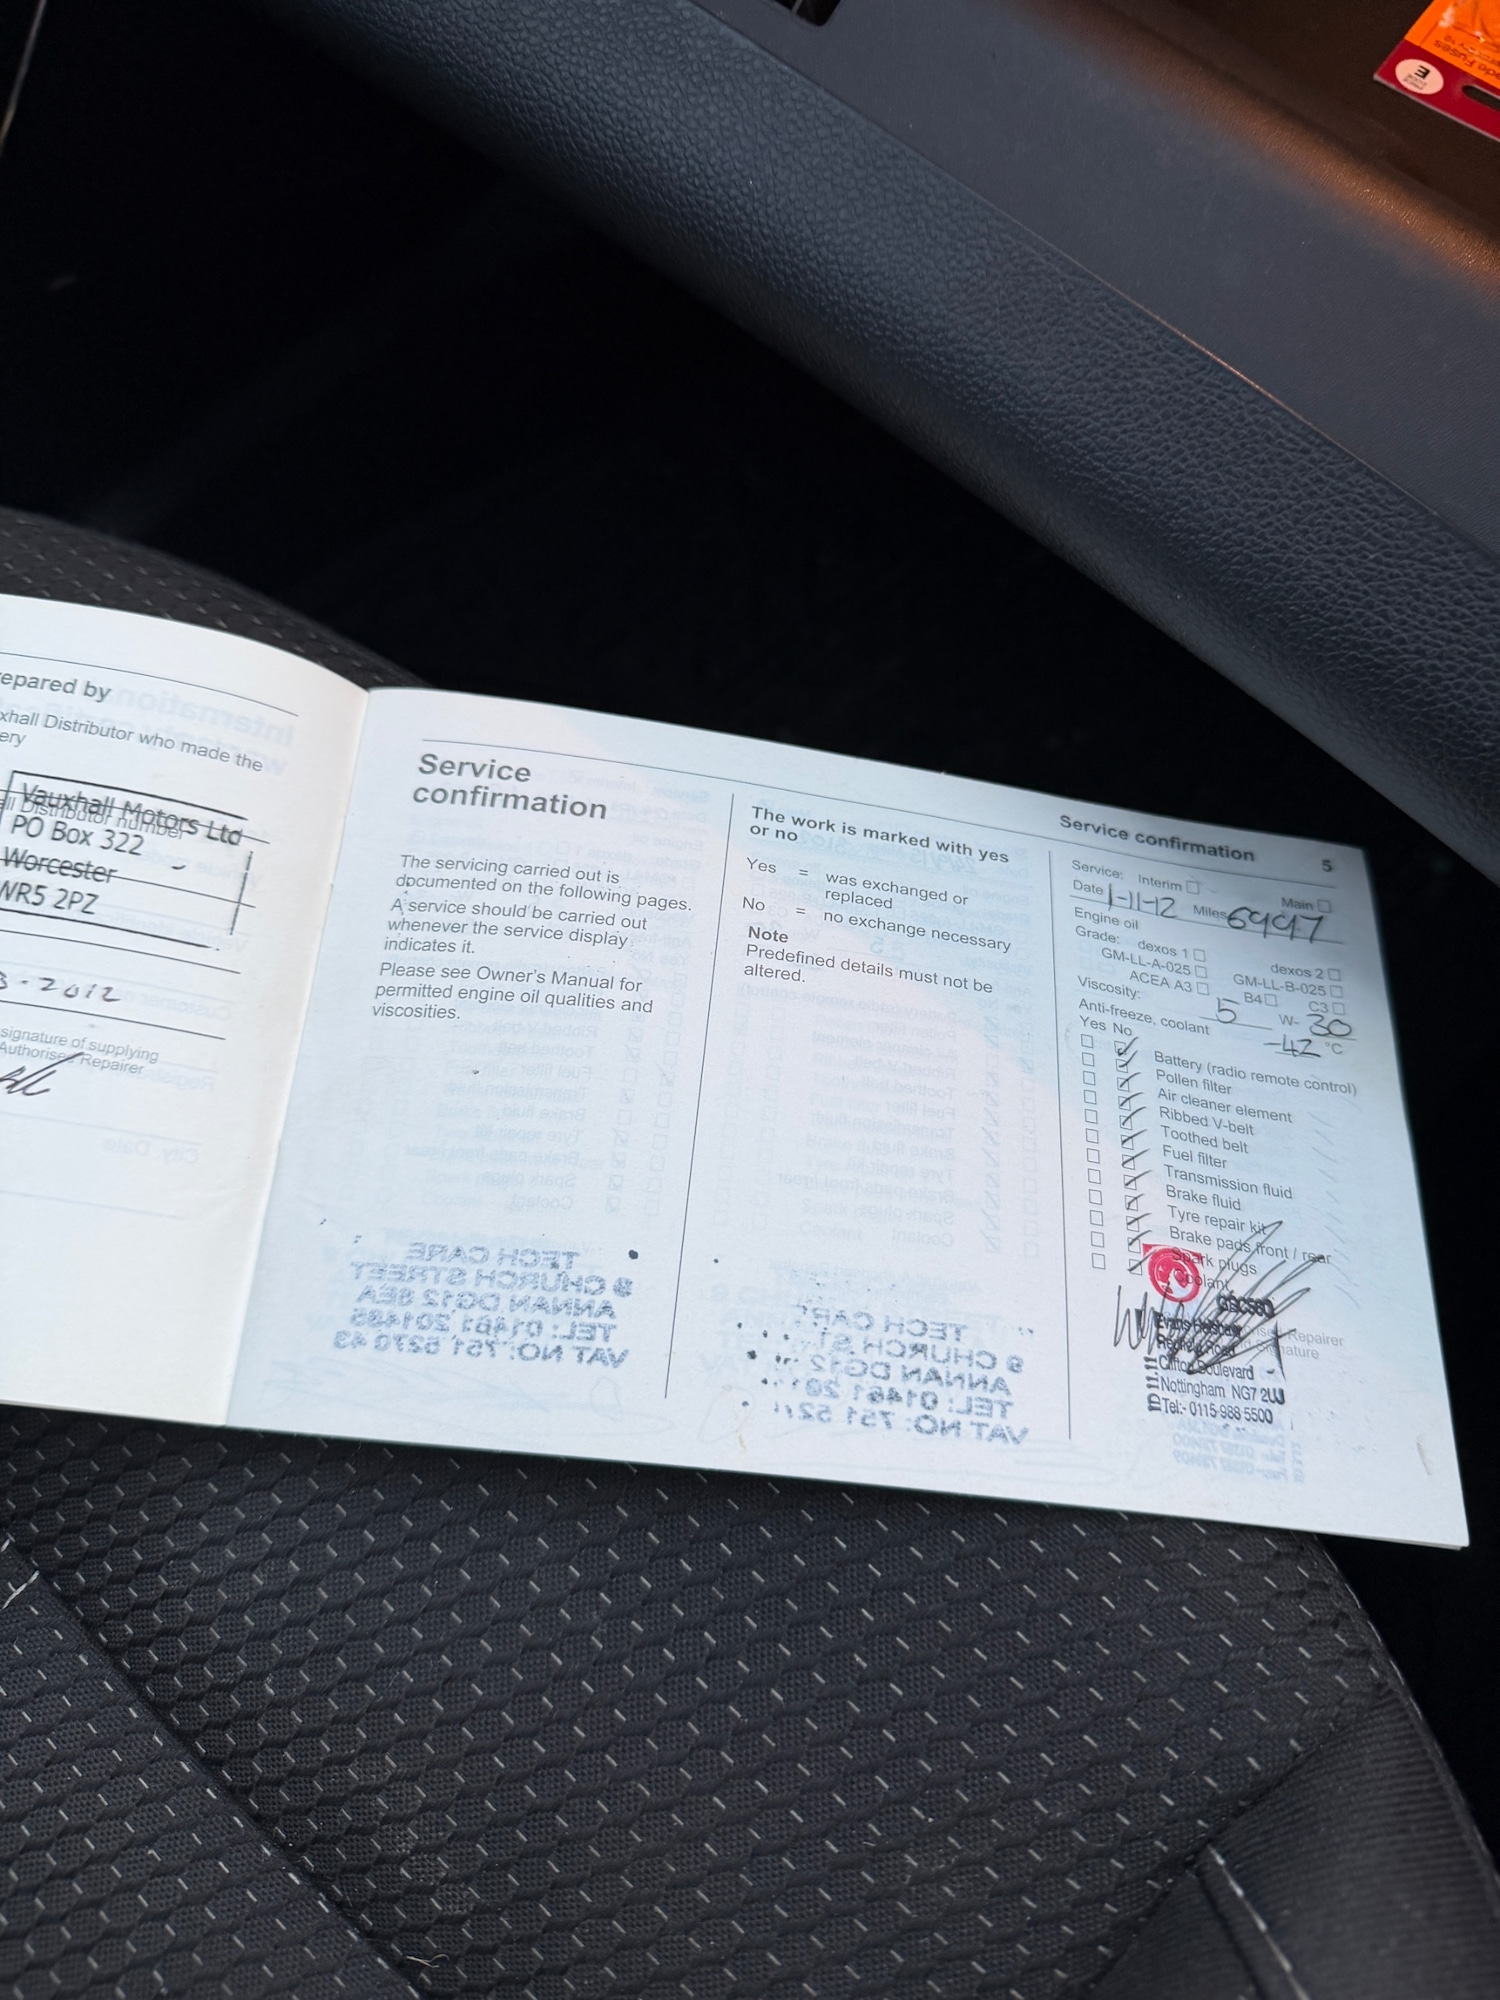 epared by
xhall Distributor who made the
ery
Vauxhall Motors Ltd
all Distributor number
PO Box 322
Worcester
WR5 2PZ
3-2012
signature of supplying
Authorised Repairer
Service
confirmation
The servicing carried out is
documented on the following pages.
A service should be carried out
whenever the service display
indicates it.
Please see Owner's Manual for
permitted engine oil qualities and
viscosities.
The work is marked with yes
or no
Yes = was exchanged or
replaced
No = no exchange necessary
Note
Predefined details must not be
altered.
Service confirmation 5
Service: Interim Main
Date 1-11-12 Miles 6997
Engine oil
Grade: dexos 1 dexos 2
GM-LL-A-025 GM-LL-B-025
ACEA A3 B4 C3
Viscosity: 5 W- 30
Anti-freeze, coolant -42 °C
Yes No
Battery (radio remote control)
Pollen filter
Air cleaner element
Ribbed V-belt
Toothed belt
Fuel filter
Transmission fluid
Brake fluid
Tyre repair kit
Brake pads front / rear
Spark plugs
Coolant
Repairer
Evans Halshaw
Road
Clifton Boulevard
Nottingham NG7 2UJ
Tel:- 0115-988-5500
ID 11.11
TECH CARE
9 CHURCH STREET
ANNAN DG12 6EA
TEL: 01461 201485
VAT NO: 751 5270 43
TECH CAR
9 CHURCH
ANNAN DG12
TEL: 01461 20
VAT NO: 751 52